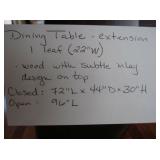 Dining Table - extension
1 leaf (22"W)
- wood with subtle inlay
design on top
Closed: 72"L x 44"D x 30"H
Open: 96"L